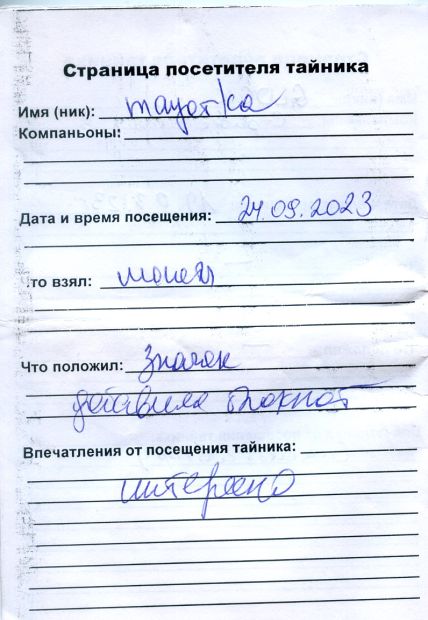 Страница посетителя тайника
Имя (ник): mayotka
Компаньоны:
Дата и время посещения: 24.09.2023
то взял:
Что положил: значок
добавила блокнот
Впечатления от посещения тайника:
интересно